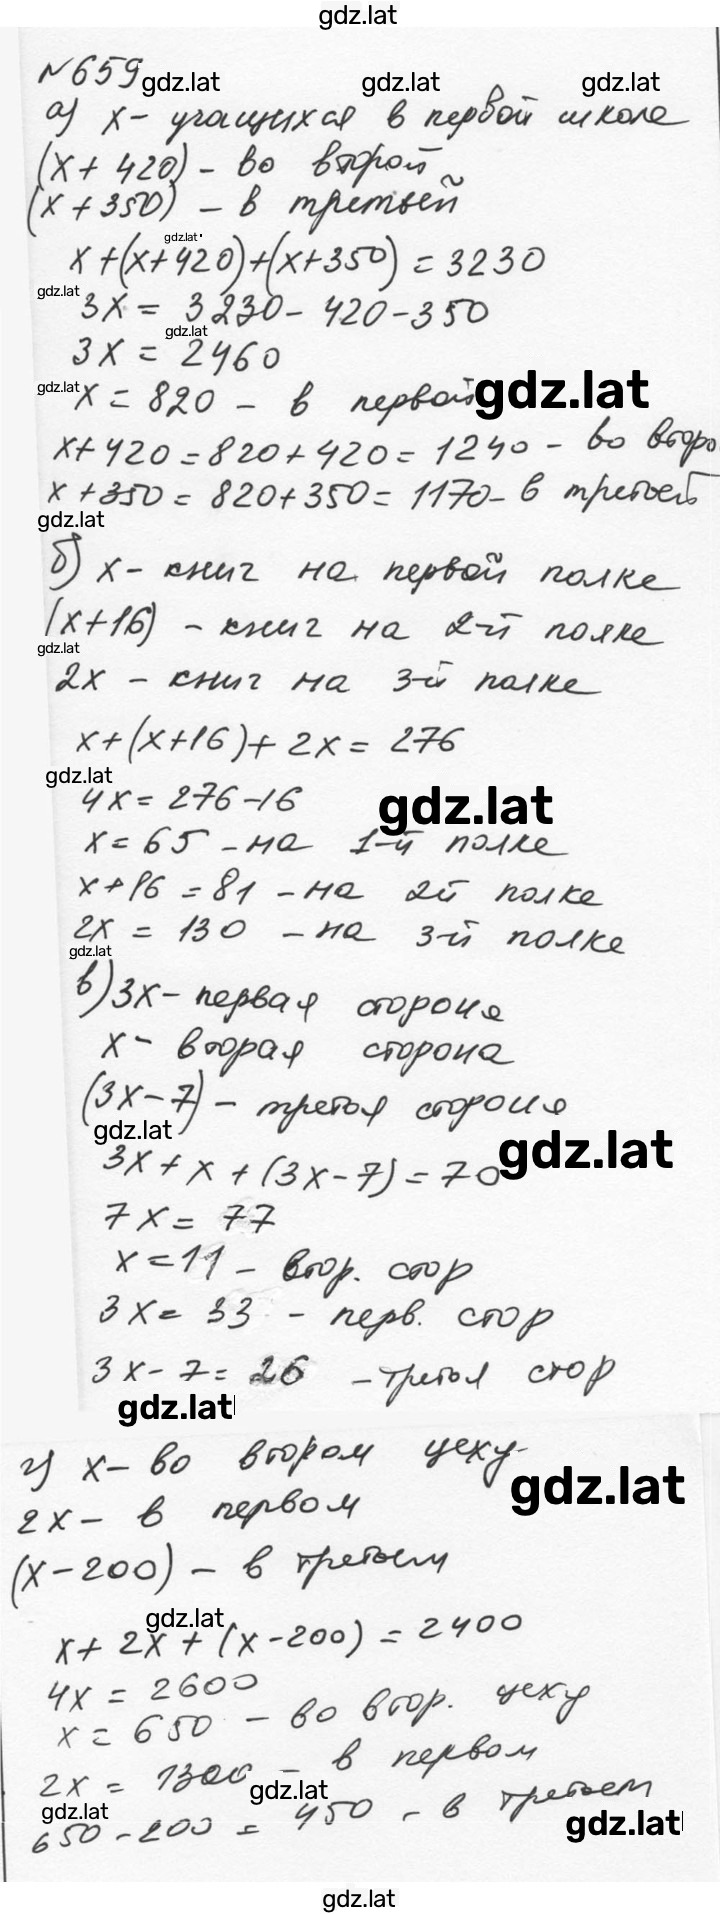 gdz.lat
№659
gdz.lat gdz.lat gdz.lat
а) x- учащихся в первой школе
(x+ 420) - во второй
(x+350) - в третьей
gdz.lat
x+(x+420)+(x+350) = 3230
gdz.lat
3x = 3230- 420-350
gdz.lat
3x = 2460
gdz.lat
x = 820 - в первой
gdz.lat
x+420 = 820+420 = 1240 - во второ
x+350 = 820+350 = 1170- в третьей
gdz.lat
б) x- книг на первой полке
(x+16) - книг на 2-й полке
gdz.lat
2x - книг на 3-й полке
x+(x+16)+ 2x = 276
gdz.lat
4x = 276-16
gdz.lat
x = 65 - на 1-й полке
x+16 = 81 - на 2й полке
2x = 130 - на 3-й полке
gdz.lat
в) 3x- первая сторона
x- вторая сторона
(3x-7) - третья сторона
gdz.lat
gdz.lat
3x+x+(3x-7) = 70
7x = 77
x = 11 - втор. стор
3x = 33 - перв. стор
3x-7 = 26 - третья стор
gdz.lat
г) x- во втором цеху
gdz.lat
2x- в первом
(x-200) - в третьем
gdz.lat
x+ 2x + (x-200) = 2400
4x = 2600
x = 650 - во втор. цеху
2x = 1300 - в первом
gdz.lat
gdz.lat
650-200 = 450 - в третьем
gdz.lat
gdz.lat